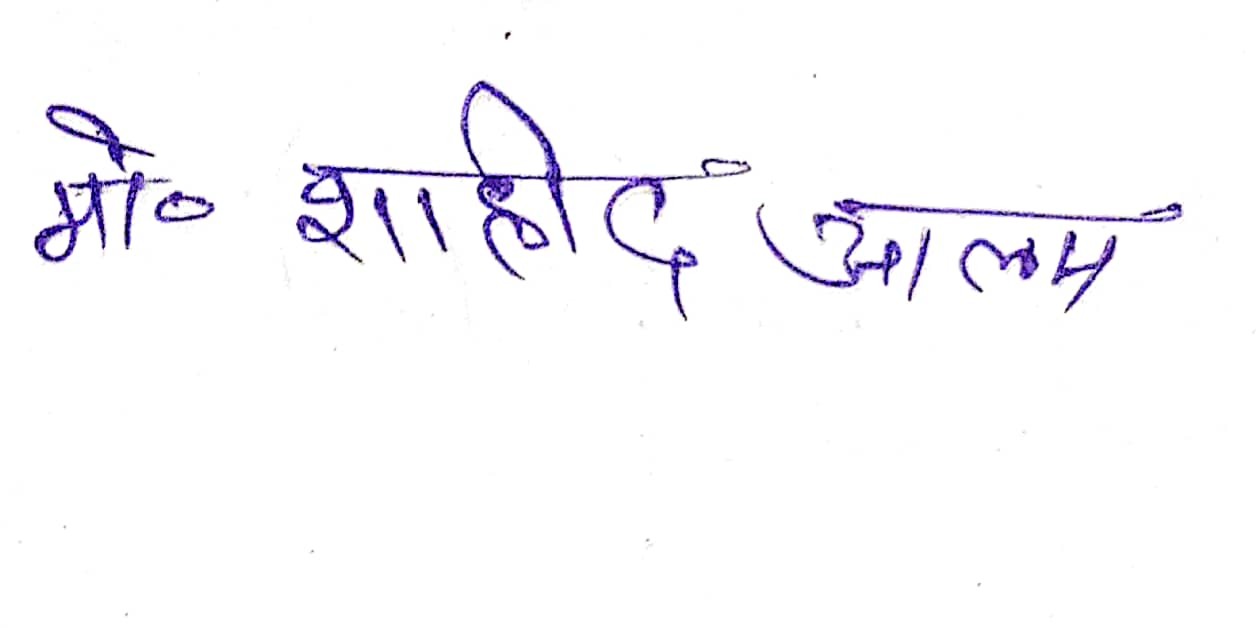 मो० शाहीद आलम